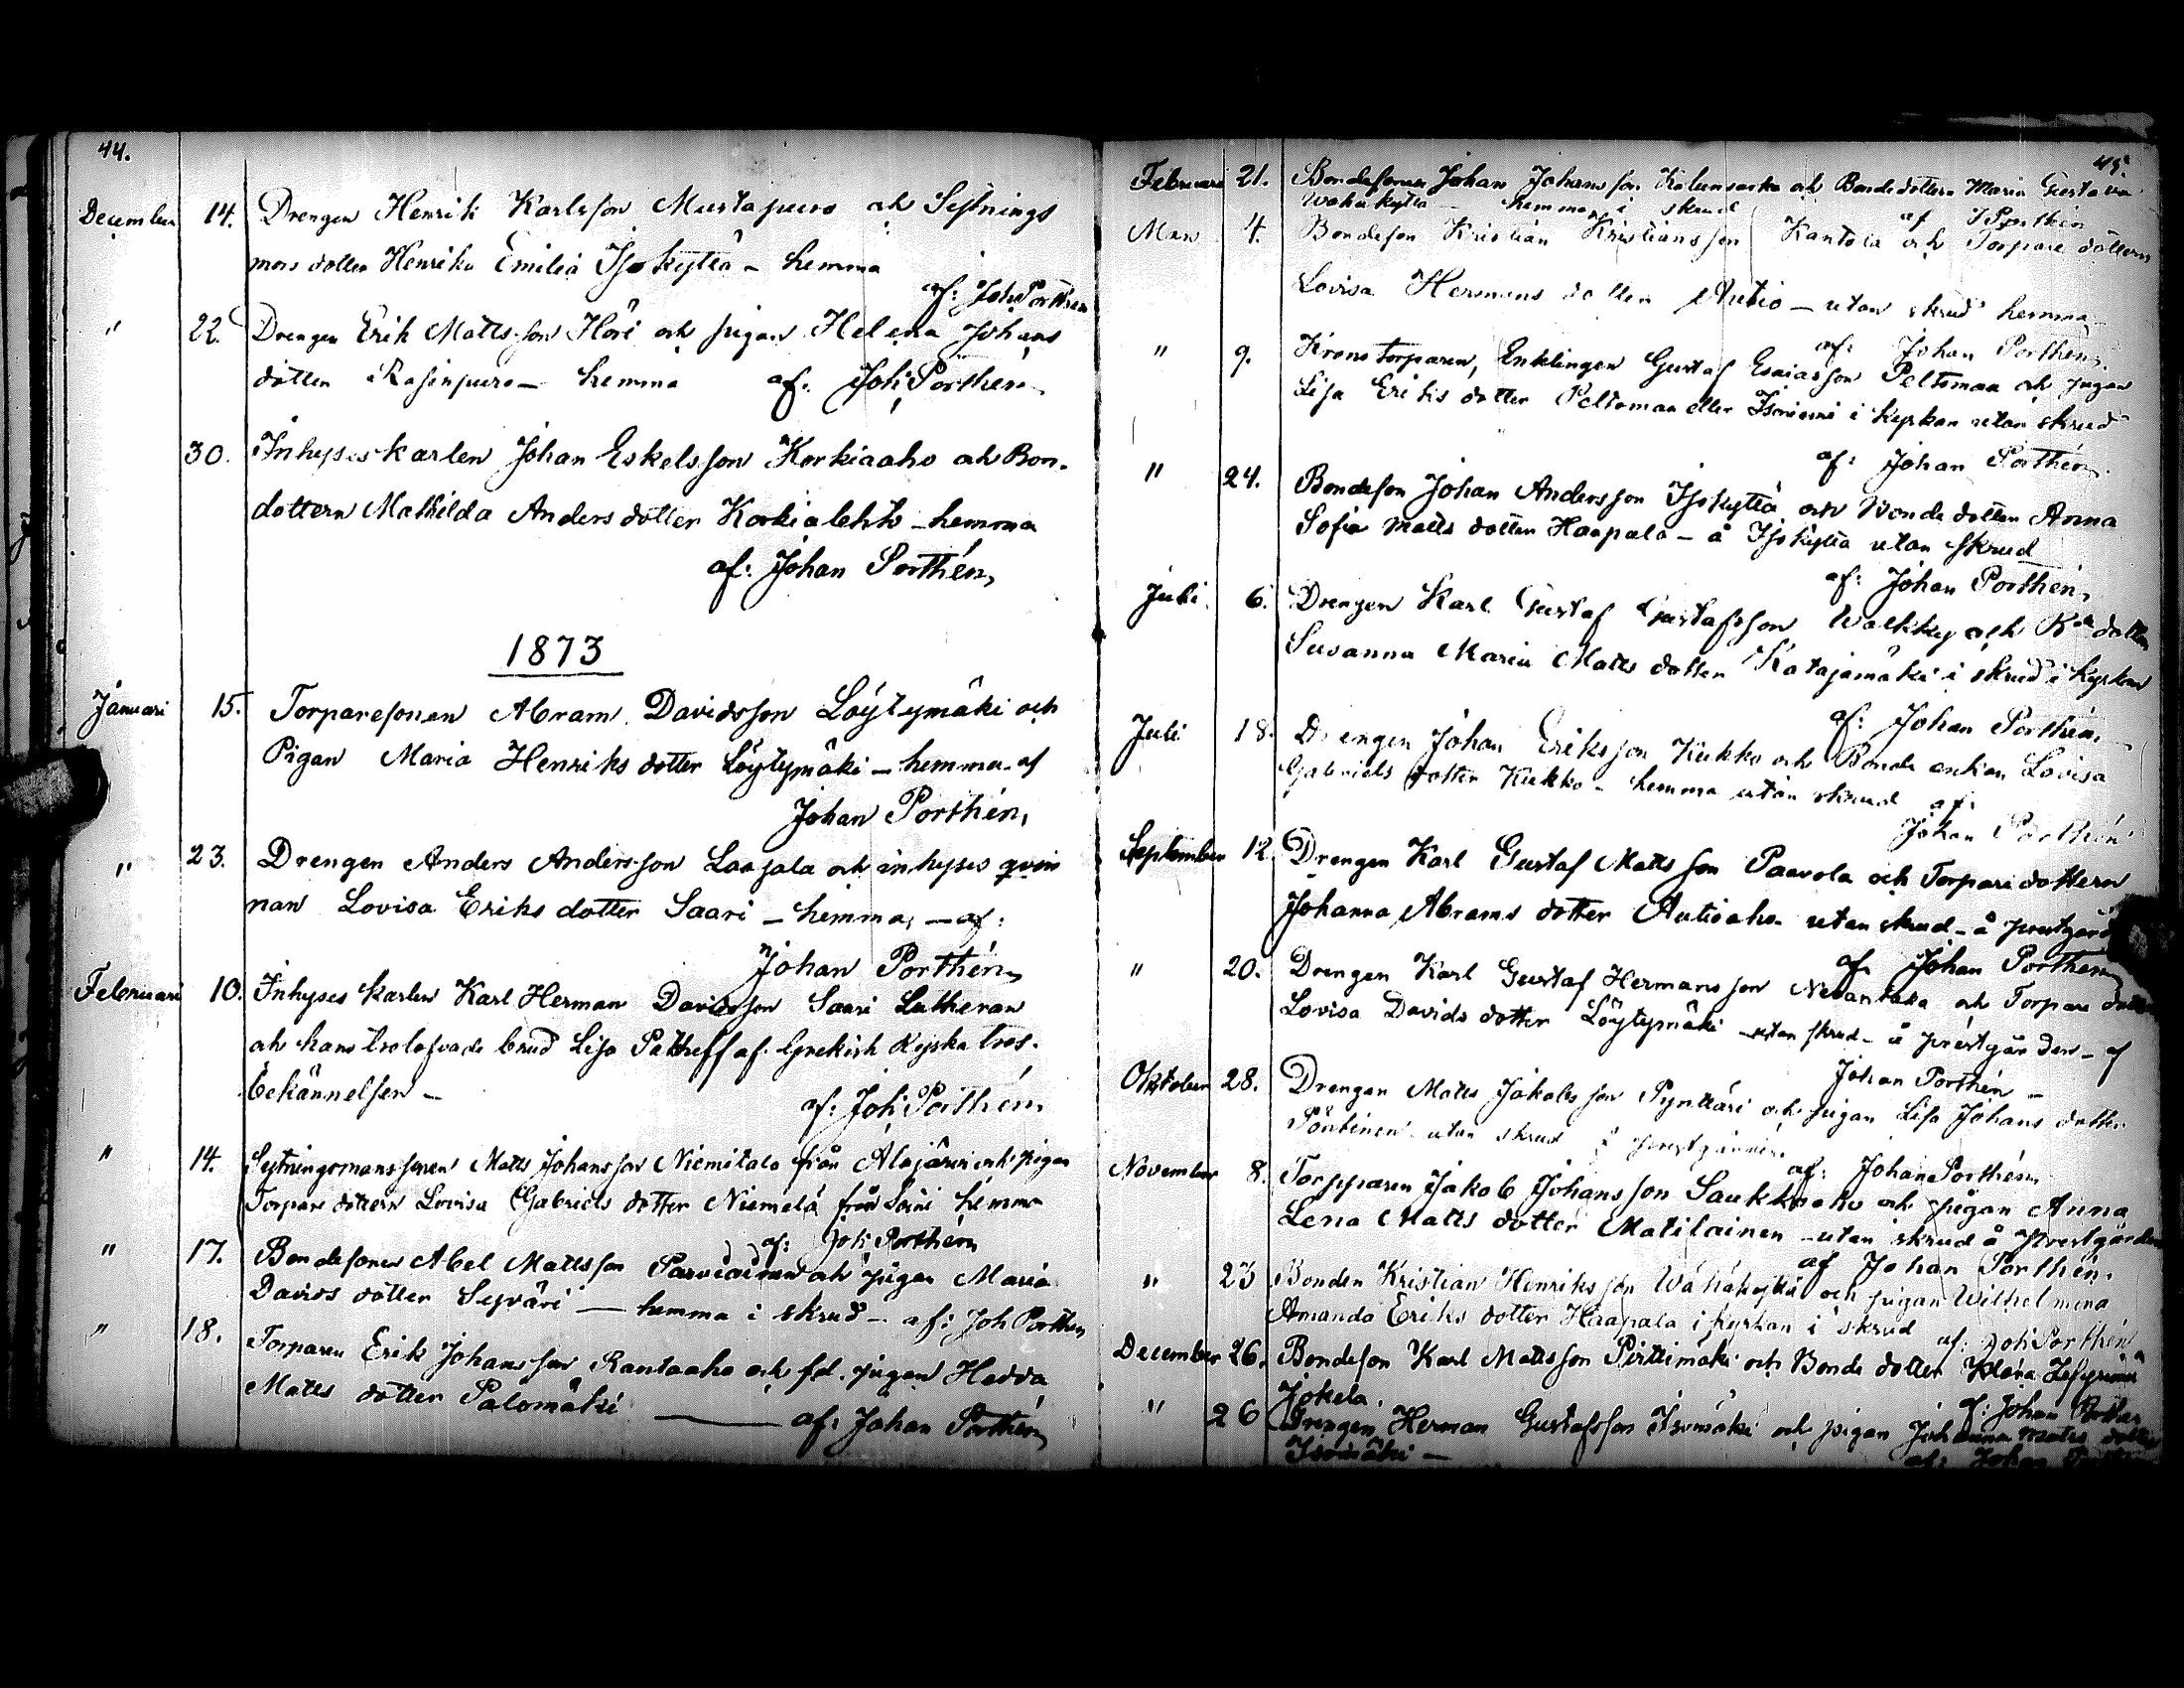 44.
December 14. Drengen Henrik Karlsson Mustapuro och Sytnings
mors dotter Henrika Emilia Isokyttä - hemma
af: Joh Porthén
" 22. Drengen Erik Mattsson Höri och pigan Helena Johans
dotter Rasinpuro - hemma af: Joh: Porthén
30. Inhyseskarlen Johan Eskelsson Korkiaaho och Bon-
dottern Mathilda Anders dotter Korkialehto - hemma
af: Johan Porthén,
1873
Januari 15. Torparesonen Abram Davidsson Löytymäki och
Pigan Maria Henriks dotter Löytymäki - hemma - af
Johan Porthén,
" 23. Drengen Anders Andersson Laasala och inhyses qvin
nan Lovisa Eriks dotter Saari - hemma, - af:
Johan Porthén,
Februari 10. Inhyses karlen Karl Herman Davidsson Saari Lutheran
och hans trolofvade brud Lisa af Grekisk Kyrka tros-
bekännelsen -
af: Joh: Porthén,
" 14. Sytningsmanssonen Matts Johansson Niemitalo från Alajärvi och pigan
Torpare dottern Lovisa Gabriels dotter Niemelä från Soini hemma
af: Joh: Porthén
" 17. Bondesonen Abel Mattsson Parviainen och pigan Maria
Davids dotter Syväri - hemma i skrud - af: Joh Porthén
" 18. Torparen Erik Johansson Rantaaho och fd. pigan Hedda
Matts dotter Palomäki - af: Johan Porthén
45.
Februari 21. Bondesonen Johan Johansson och Bonde dottern Maria Gustava
Wähäkyttä - hemma i skrud af J Porthén
Mars 4. Bondeson Kristian Kristiansson Kantola och Torpare dottern
Lovisa Hermans dotter Autio - utan skrud hemma
af: Johan Porthén,
" 9. Krono torparen, Enklingen Gustaf Esaiasson Peltomaa och pigan
Lisa Eriks dotter Peltomaa eller i kyrkan utan skrud
af: Johan Porthén.
" 24. Bondeson Johan Andersson Isokyttä och Bonde dotter Anna
Sofia Matts dotter Haapala - å Isokyttä utan skrud
af: Johan Porthén,
Juli 6. Drengen Karl Gustaf Gustafsson Walkky och dotter
Susanna Maria Matts dotter Katajamäki i skrud i Kyrkan
af: Johan Porthén,
Juli 18. Drengen Johan Eriksson Kukko och Bonde enkan Lovisa
Gabriels dotter Kukko - hemma utan skrud af:
Johan Porthén
September 12. Drengen Karl Gustaf Matts son Paavola och Torpare dottern
Johanna Abrams dotter Autioaho - utan skrud - å prestgård
af Johan Porthén
" 20. Drengen Karl Gustaf Hermansson Nevantaka och Torpare dotter
Lovisa Davids dotter Löytymäki - utan skrud - å prestgården - af
Johan Porthén -
Oktober 28. Drengen Matts Jakobsson Pynttäri och pigan Lisa Johans dotter
Pöntinen utan skrud å prestgården
af: Johan Porthén,
November 8. Torpparen Jakob Johansson Saukkoaho och pigan Anna
Lena Matts dotter Matilainen - utan skrud å prestgården
af Johan Porthén.
" 23 Bonden Kristian Henriksson Wähäkyttä och pigan Wilhelmina
Amanda Eriks dotter Haapala i kyrkan i skrud af: Joh: Porthén
December 26. Bondeson Karl Mattsson Pirttimäki och Bonde dotter Klara
Jokela. af: Johan Porthén
" 26 Drengen Herman Gustafsson Isomäki och pigan Johanna Matts dotter
Isomäki - af: Johan